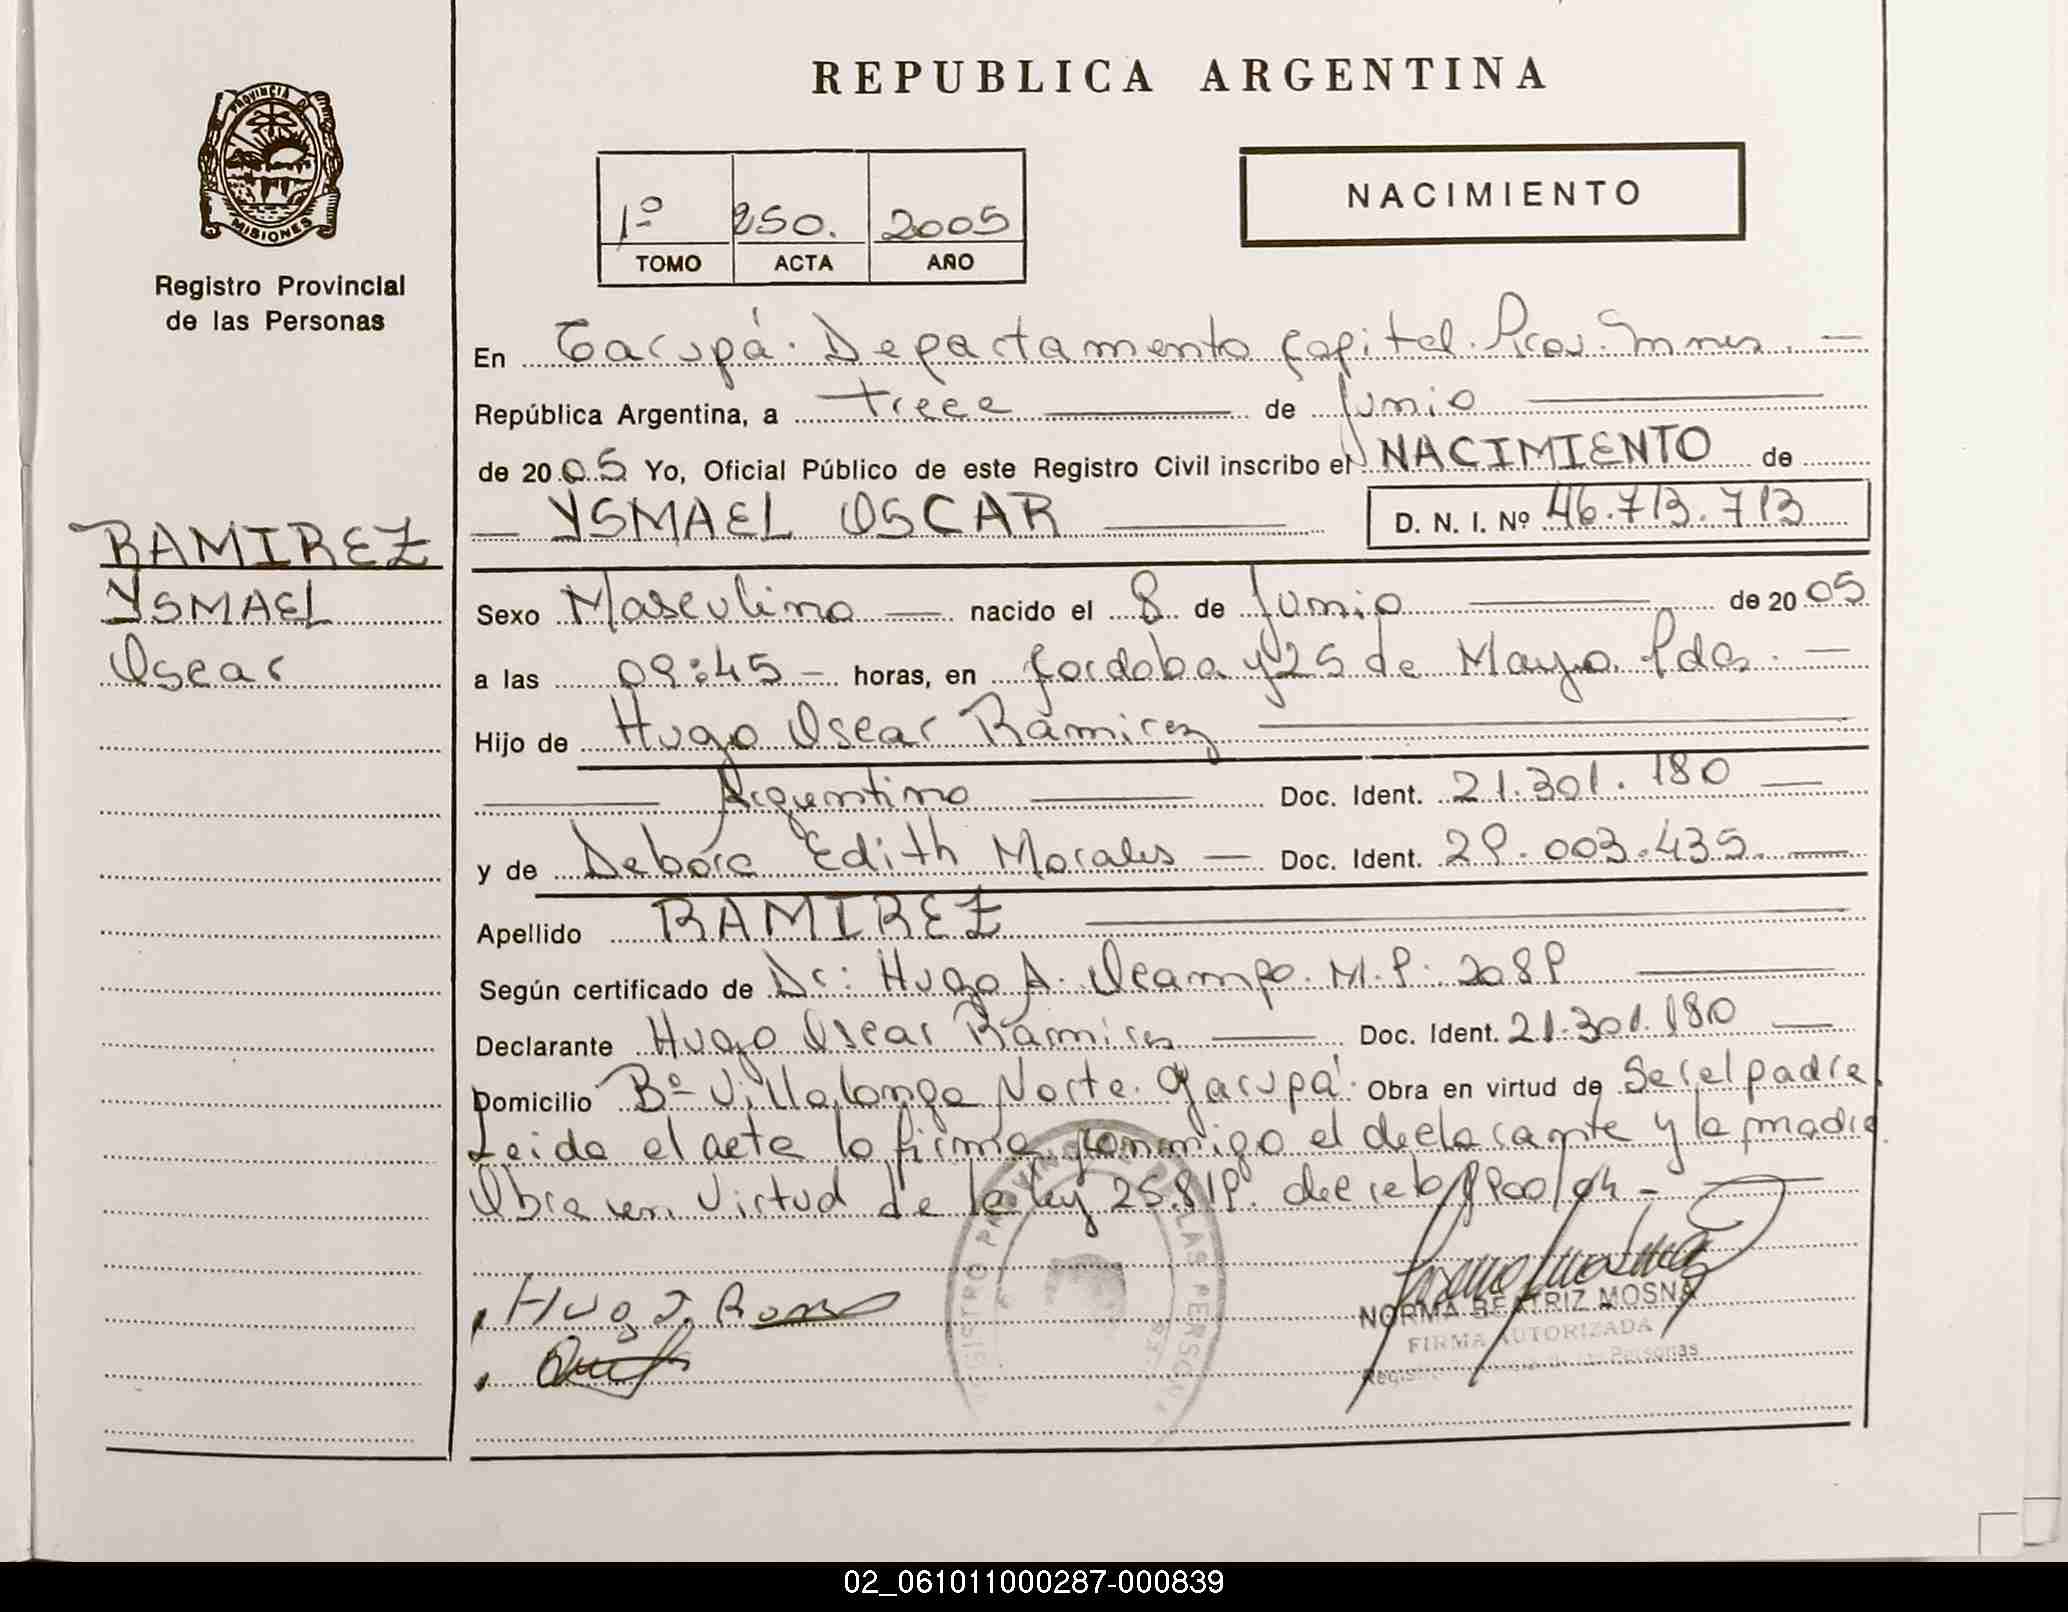 REPUBLICA ARGENTINA
PROVINCIA DE
MISIONES
Registro Provincial
de las Personas
1º 250. 2005
TOMO ACTA AÑO
NACIMIENTO
En Garupá. Departamento Capital. Prov. Mnes. —
República Argentina, a trece — de Junio —
de 2005 Yo, Oficial Público de este Registro Civil inscribo el NACIMIENTO de
— YSMAEL OSCAR — D. N. I. Nº 46.713.713
RAMIREZ
YSMAEL
Oscar
Sexo Masculino — nacido el 8 de Junio — de 2005
a las 09:45 — horas, en Cordoba y 25 de Mayo. Pdas. —
Hijo de Hugo Oscar Ramirez —
— Argentino — Doc. Ident. 21.301.180 —
y de Debora Edith Morales — Doc. Ident. 29.003.435. —
Apellido RAMIREZ —
Según certificado de Dr: Hugo A. Ocampo. M.P: 2089 —
Declarante Hugo Oscar Ramirez — Doc. Ident. 21.301.180 —
Domicilio Bº Villalonga Norte. Garupá. Obra en virtud de Ser el padre.
Leida el acta la firma conmigo el declarante y la madre.
Obra en virtud de la ley 25.819. decreto 900/04 - —
Hugo O. Ram
NORMA BEATRIZ MOSNA
FIRMA AUTORIZADA
Registro de las Personas
REGISTRO PROVINCIAL DE LAS PERSONAS
02_061011000287-000839